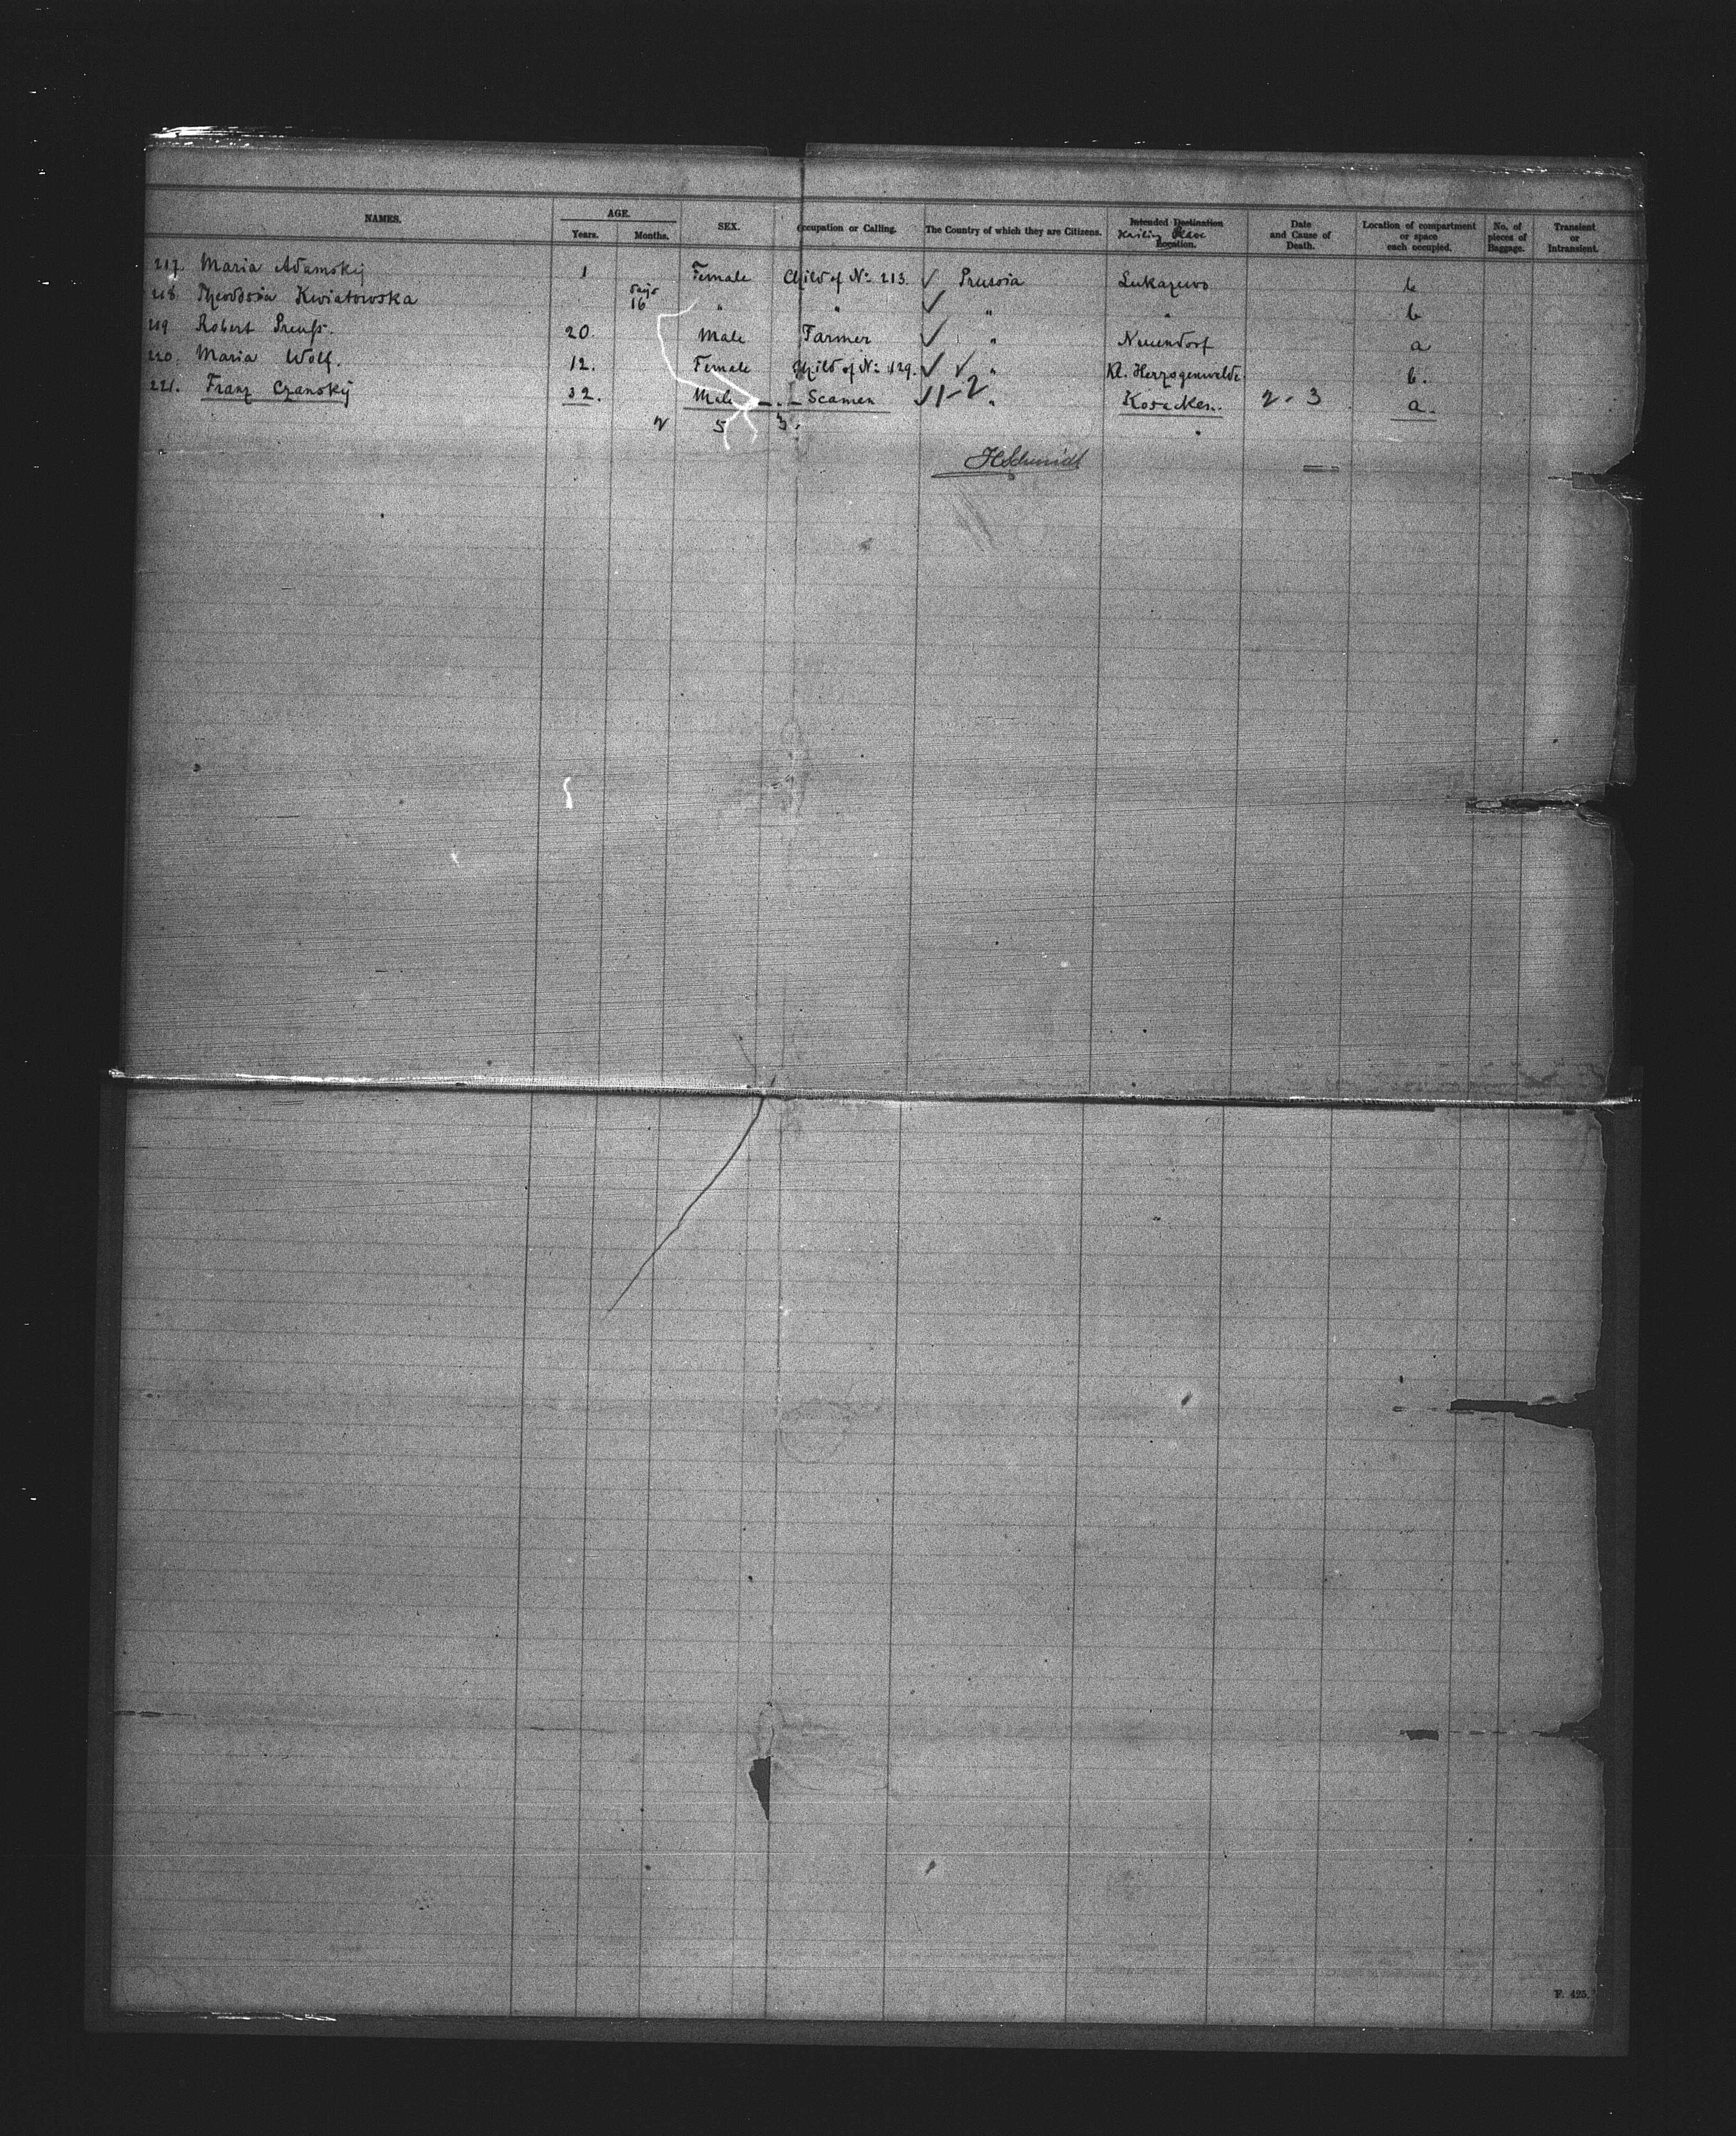 NAMES. AGE. Years. Months. SEX. Occupation or Calling. The Country of which they are Citizens. Intended Destination Location. Date and Cause of Death. Location of compartment or space each occupied. No. of pieces of Baggage. Transient or Intransient.
217. Maria Adamskij 1 Female Child of No. 213. ✓ Prussia Lukazewo b
218. Theodosia Kwiatowska days 16 " " ✓ " " b
219 Robert Preuß. 20. Male Farmer ✓ " Neuendorf a
220. Maria Wolf. 12. Female Child of No. 129. ✓ ✓ " Kl. Herzogenwalde b.
221. Franz Czanskij 32. Male Seaman ✓ 1-2 " Kosacken. 2-3 a.
2 5 3.
H Schmidt
F. 425.